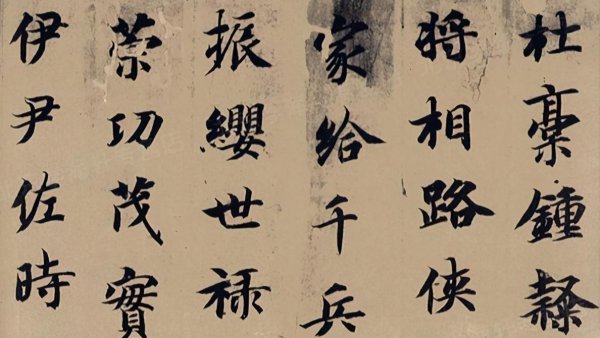 杜稾鍾隸
将相路侠
家給千兵
振纓世禄
策功茂實
伊尹佐時